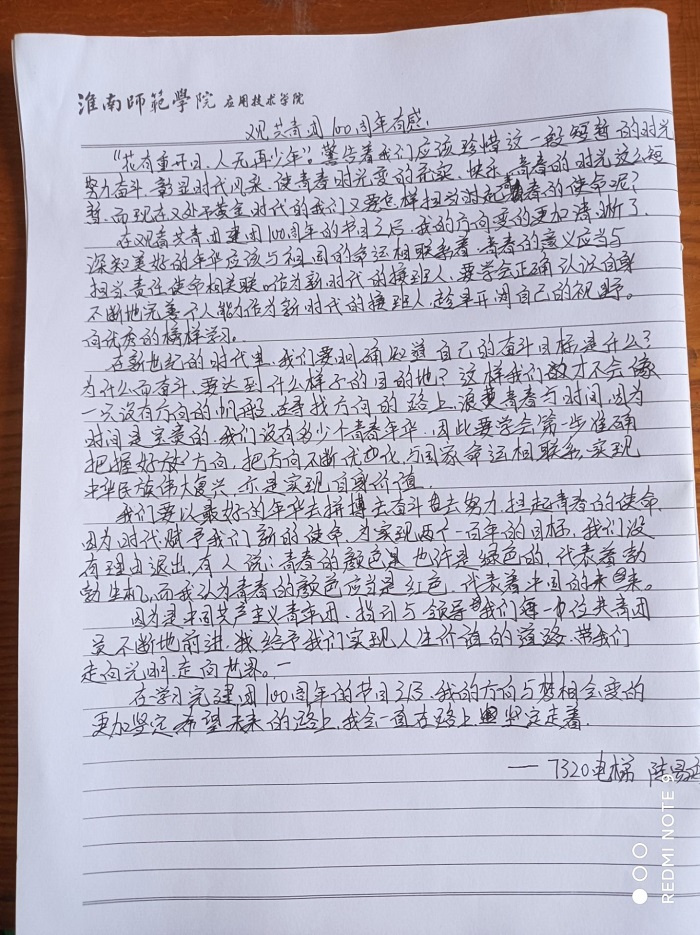 淮南师范學院 应用技术学院
观共青团100周年有感.
"花有重开日,人无再少年"。警告着我们应该珍惜这一般短暂的时光
努力奋斗,彰显时代风采,使青春时光变的充实、快乐,青春的时光这么短
暂,而现在又处于黄金时代的我们又要怎样担当时起青春的使命呢?
在观看共青团建团100周年的节目之后,我的方向变的更加清晰了.
深知美好的年华应该与祖国的命运相联系着,青春的意义应当与
担当、责任、使命相关联.作为新时代的接班人,要学会正确认识自身
不断地完善个人能力,作为新时代的接班人,趁早开阔自己的视野。
向优秀的榜样学习。
在新世纪的时代里,我们要明确知道自己的奋斗目标是什么?
为什么而奋斗,要达到什么样子的目的地?这样我们才不会像
一只没有方向的帆船,在寻找方向的路上,浪费青春与时间,因为
时间是宝贵的,我们没有多少个青春年华,因此要学会第一步准确
把握好方向,把方向不断优化,与国家命运相联系,实现
中华民族伟大复兴,亦是实现自身价值.
我们要以最好的年华去拼搏去奋斗去努力,担起青春的使命,
因为时代赋予我们新的使命,为实现两个一百年的目标,我们没
有理由退出,有人说:青春的颜色也许是绿色的,代表着勃
勃生机,而我认为青春的颜色应当是红色,代表着中国的未来。
因为是中国共产主义青年团,指引与领导我们每一位共青团
员不断地前进,给予我们实现人生价值的道路,带我们
走向光明,走向世界。
在学习完建团100周年的节目之后,我的方向与梦想会变的
更加坚定,希望未来的路上,我会一直在路上坚定走着.
—— 7320电梯 陈
REDMI NOTE 9